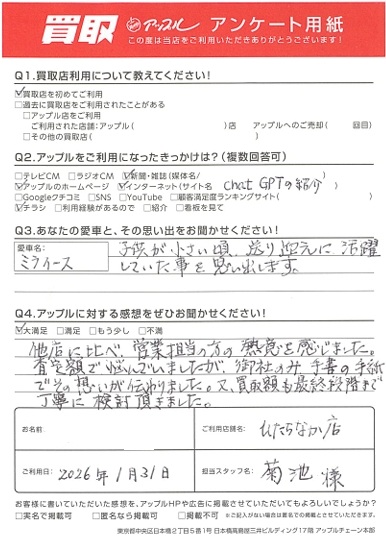 買取 アップル アンケート用紙
この度は当店をご利用いただきありがとうございます!
Q1.買取店利用について教えてください!
☑買取店を初めてご利用
□過去に買取店をご利用されたことがある
□アップル店をご利用
ご利用された店舗:アップル( )店 アップルへのご売却( 回目)
□その他の買取店( )
Q2.アップルをご利用になったきっかけは?(複数回答可)
□テレビCM □ラジオCM ☑新聞・雑誌(媒体名/ )
☑アップルのホームページ ☑インターネット(サイト名 ChatGPTの紹介 )
□Googleクチコミ □SNS □YouTube □顧客満足度ランキングサイト( )
☑チラシ □利用経験があるので □紹介 □看板を見て
Q3.あなたの愛車と、その思い出をお聞かせください!
愛車名:
ミライース
子供が小さい頃、送り迎えに活躍
していた事を思い出します。
Q4.アップルに対する感想をぜひお聞かせください!
☑大満足 □満足 □もう少し □不満
他店に比べ、営業担当の方の熱意を感じました。
査定額で悩んでいましたが、御社のみ手書の手紙
でその想いが伝わりました。又、買取額も最終段階まで
丁寧に検討頂きました。
お名前
ご利用店舗名:
ひたちなか店
ご利用日:
2026年1月31日
担当スタッフ名:
菊池様
お客様に書いていただいた感想を、アップルHPや広告に掲載させていただいてもよろしいでしょうか?
□実名で掲載可 □匿名なら掲載可 □掲載不可 ※ご記入がない場合は匿名での掲載とさせていただきます。
東京都中央区日本橋2丁目5番1号 日本橋髙島屋三井ビルディング17階 アップルチェーン本部